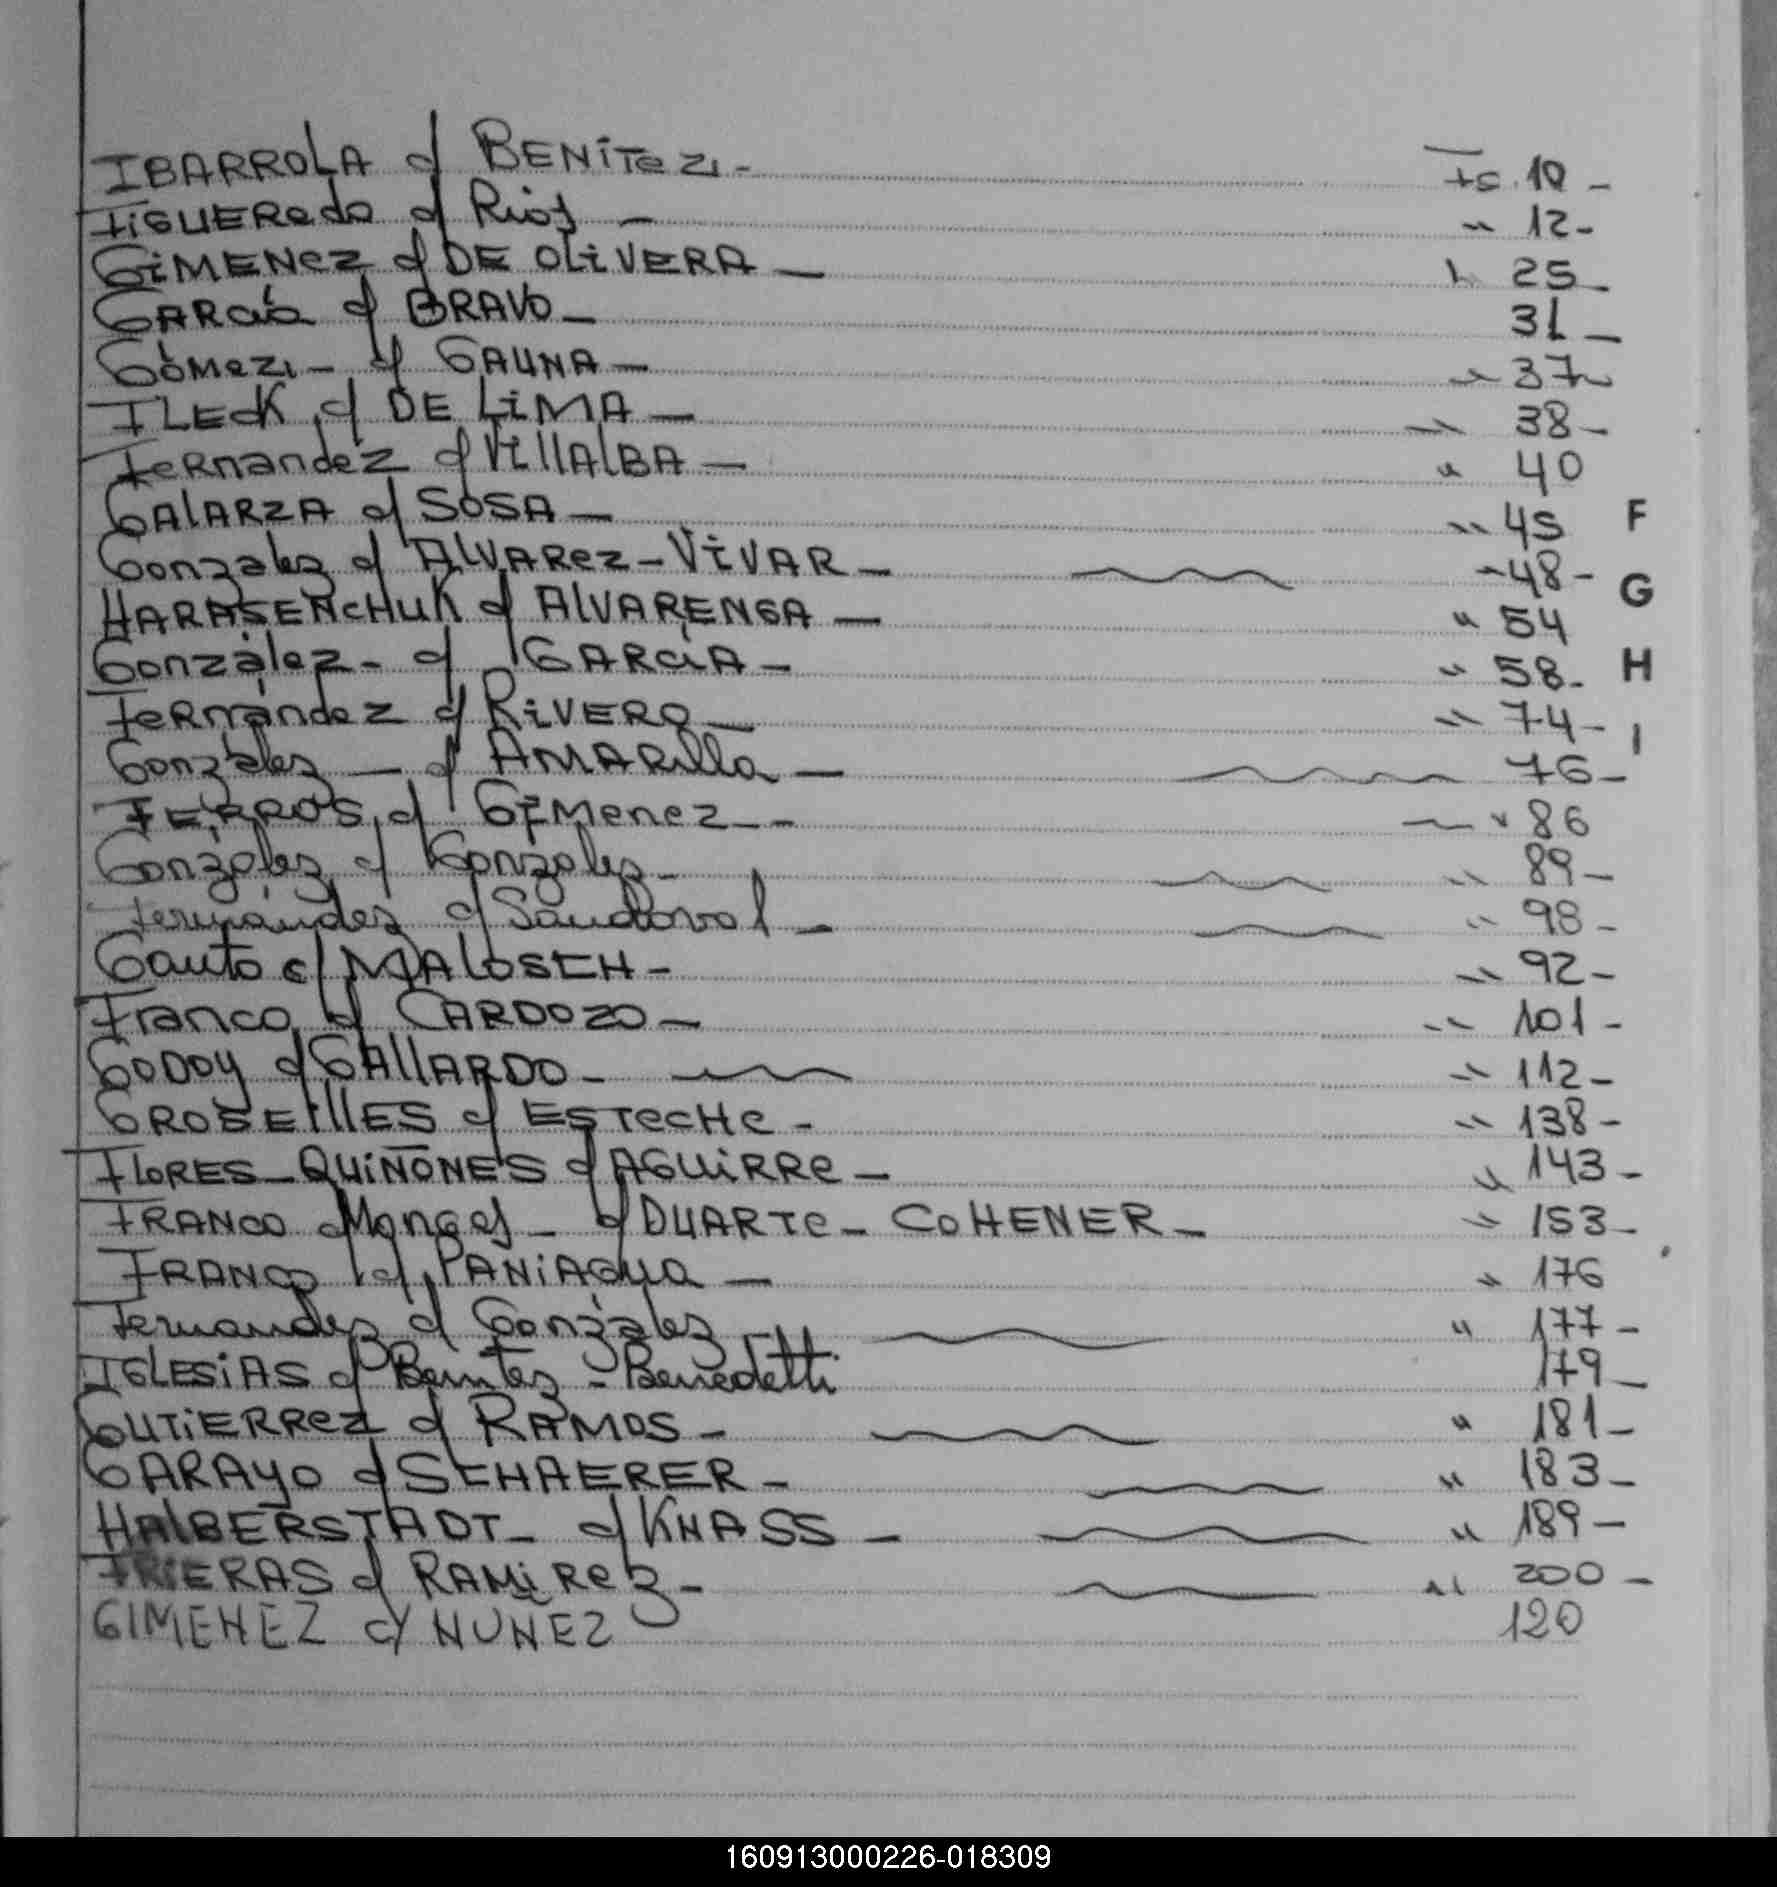 IBARROLA c/ BENÍTEZ.- Fs. 10 -
FiGUEREdo c/ Ríos - " 12-
GiMENEZ c/ DE OLiVERA - " 25-
GARCíA c/ BRAVO - 31 -
GóMEZ.- c/ GAUNA - " 37-
ILECK c/ DE LiMA - " 38-
FERNandEZ c/ VillAlBA - " 40
GAlARZA c/ SOSA - " 45
González c/ AlVAREZ-ViVAR - -48-
HARASENCHUK c/ AlVARENGA - " 54
González- c/ GARCíA - " 58-
FERNández c/ RiVERO - " 74-
González - c/ AMARilla - 76-
FERROS c/ GiMENEZ -- " 86
González c/ González - " 89-
Fernández c/ Sandoval - " 98-
Gauto c/ MAlOSEH - " 92-
Franco c/ CARDOZO - " 101-
GODOY c/ GAllARDO - " 112-
GROSEillES c/ ESTECHE - " 138-
FlORES-QUIÑONES c/ AGUIRRE - " 143-
FRANCO Monges - c/ DUARTE - COHENER - " 153-
FRANCO c/ PANiAGUA - " 176
Fernandez c/ González " 177-
IGLESiAS c/ Benítez - Benedetti 179-
GUTiERREZ c/ RAMOS - " 181-
GARAYO c/ SCHAERER - " 183-
HAlBERSTADT - c/ KNASS - " 189-
FRIERAS c/ RAMíREZ - " 200-
GIMENEZ c/ NUNEZ 120
F
G
H
I
160913000226-018309